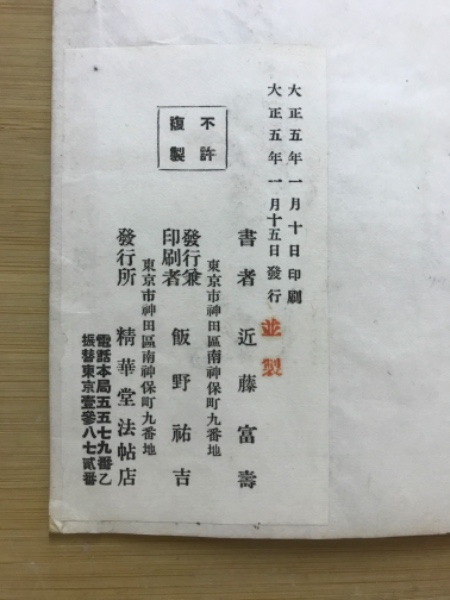 大正五年一月十日印刷
大正五年一月十五日發行
並製
不許
複製
書者 近藤富壽
東京市神田區南神保町九番地
發行兼
印刷者 飯野祐吉
東京市神田區南神保町九番地
發行所 精華堂法帖店
電話本局五五七九番乙
振替東京壹參八七貳番